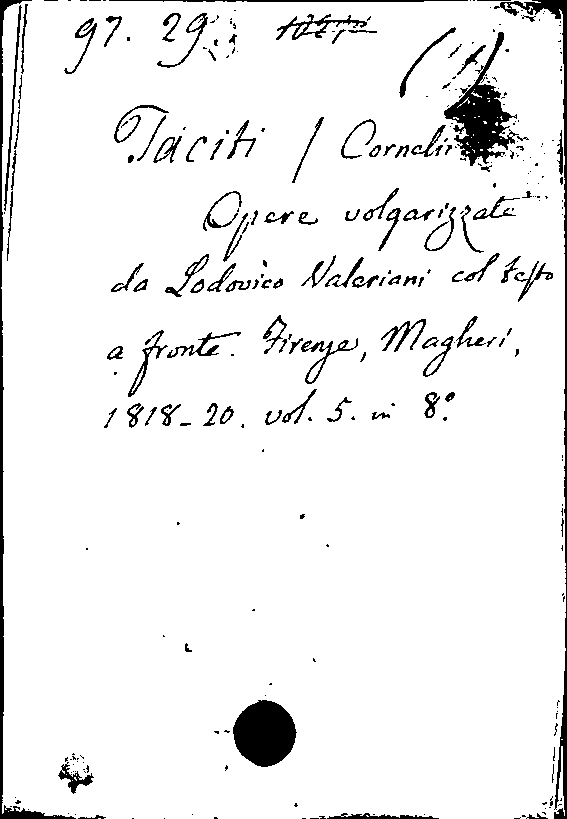 97. 29.
Taciti / Cornelii
Opere volgarizzate
da Lodovico Valeriani col testo
a fronte. Firenze, Magheri,
1818-20. vol. 5. in 8º